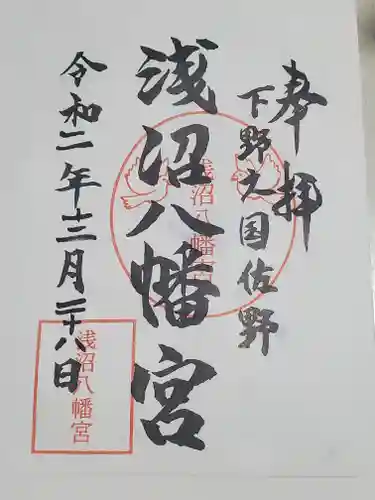 奉拝
下野之国佐野
浅沼八幡宮
浅沼八幡宮
令和二年十二月二十八日
浅沼八幡宮